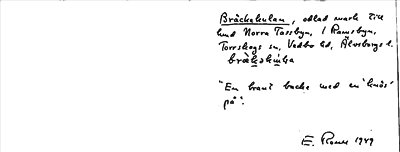 Bräckekulan, odlad mark till
hmd Norra Tassbyn, i Ramsbyn,
Torrskogs sn, Vedbo hd, Älvsborgs l.
"En brant backe med en 'knös'
på".
E. Rone 1949